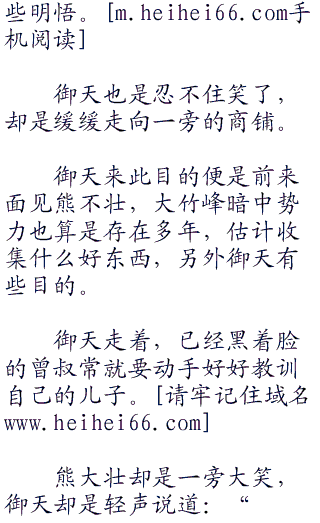 些明悟。[m.heihei66.com手
机阅读]
御天也是忍不住笑了，
却是缓缓走向一旁的商铺。
御天来此目的便是前来
面见熊不壮，大竹峰暗中势
力也算是存在多年，估计收
集什么好东西，另外御天有
些目的。
御天走着，已经黑着脸
的曾叔常就要动手好好教训
自己的儿子。[请牢记住域名
www.heihei66.com]
熊大壮却是一旁大笑，
御天却是轻声说道：“